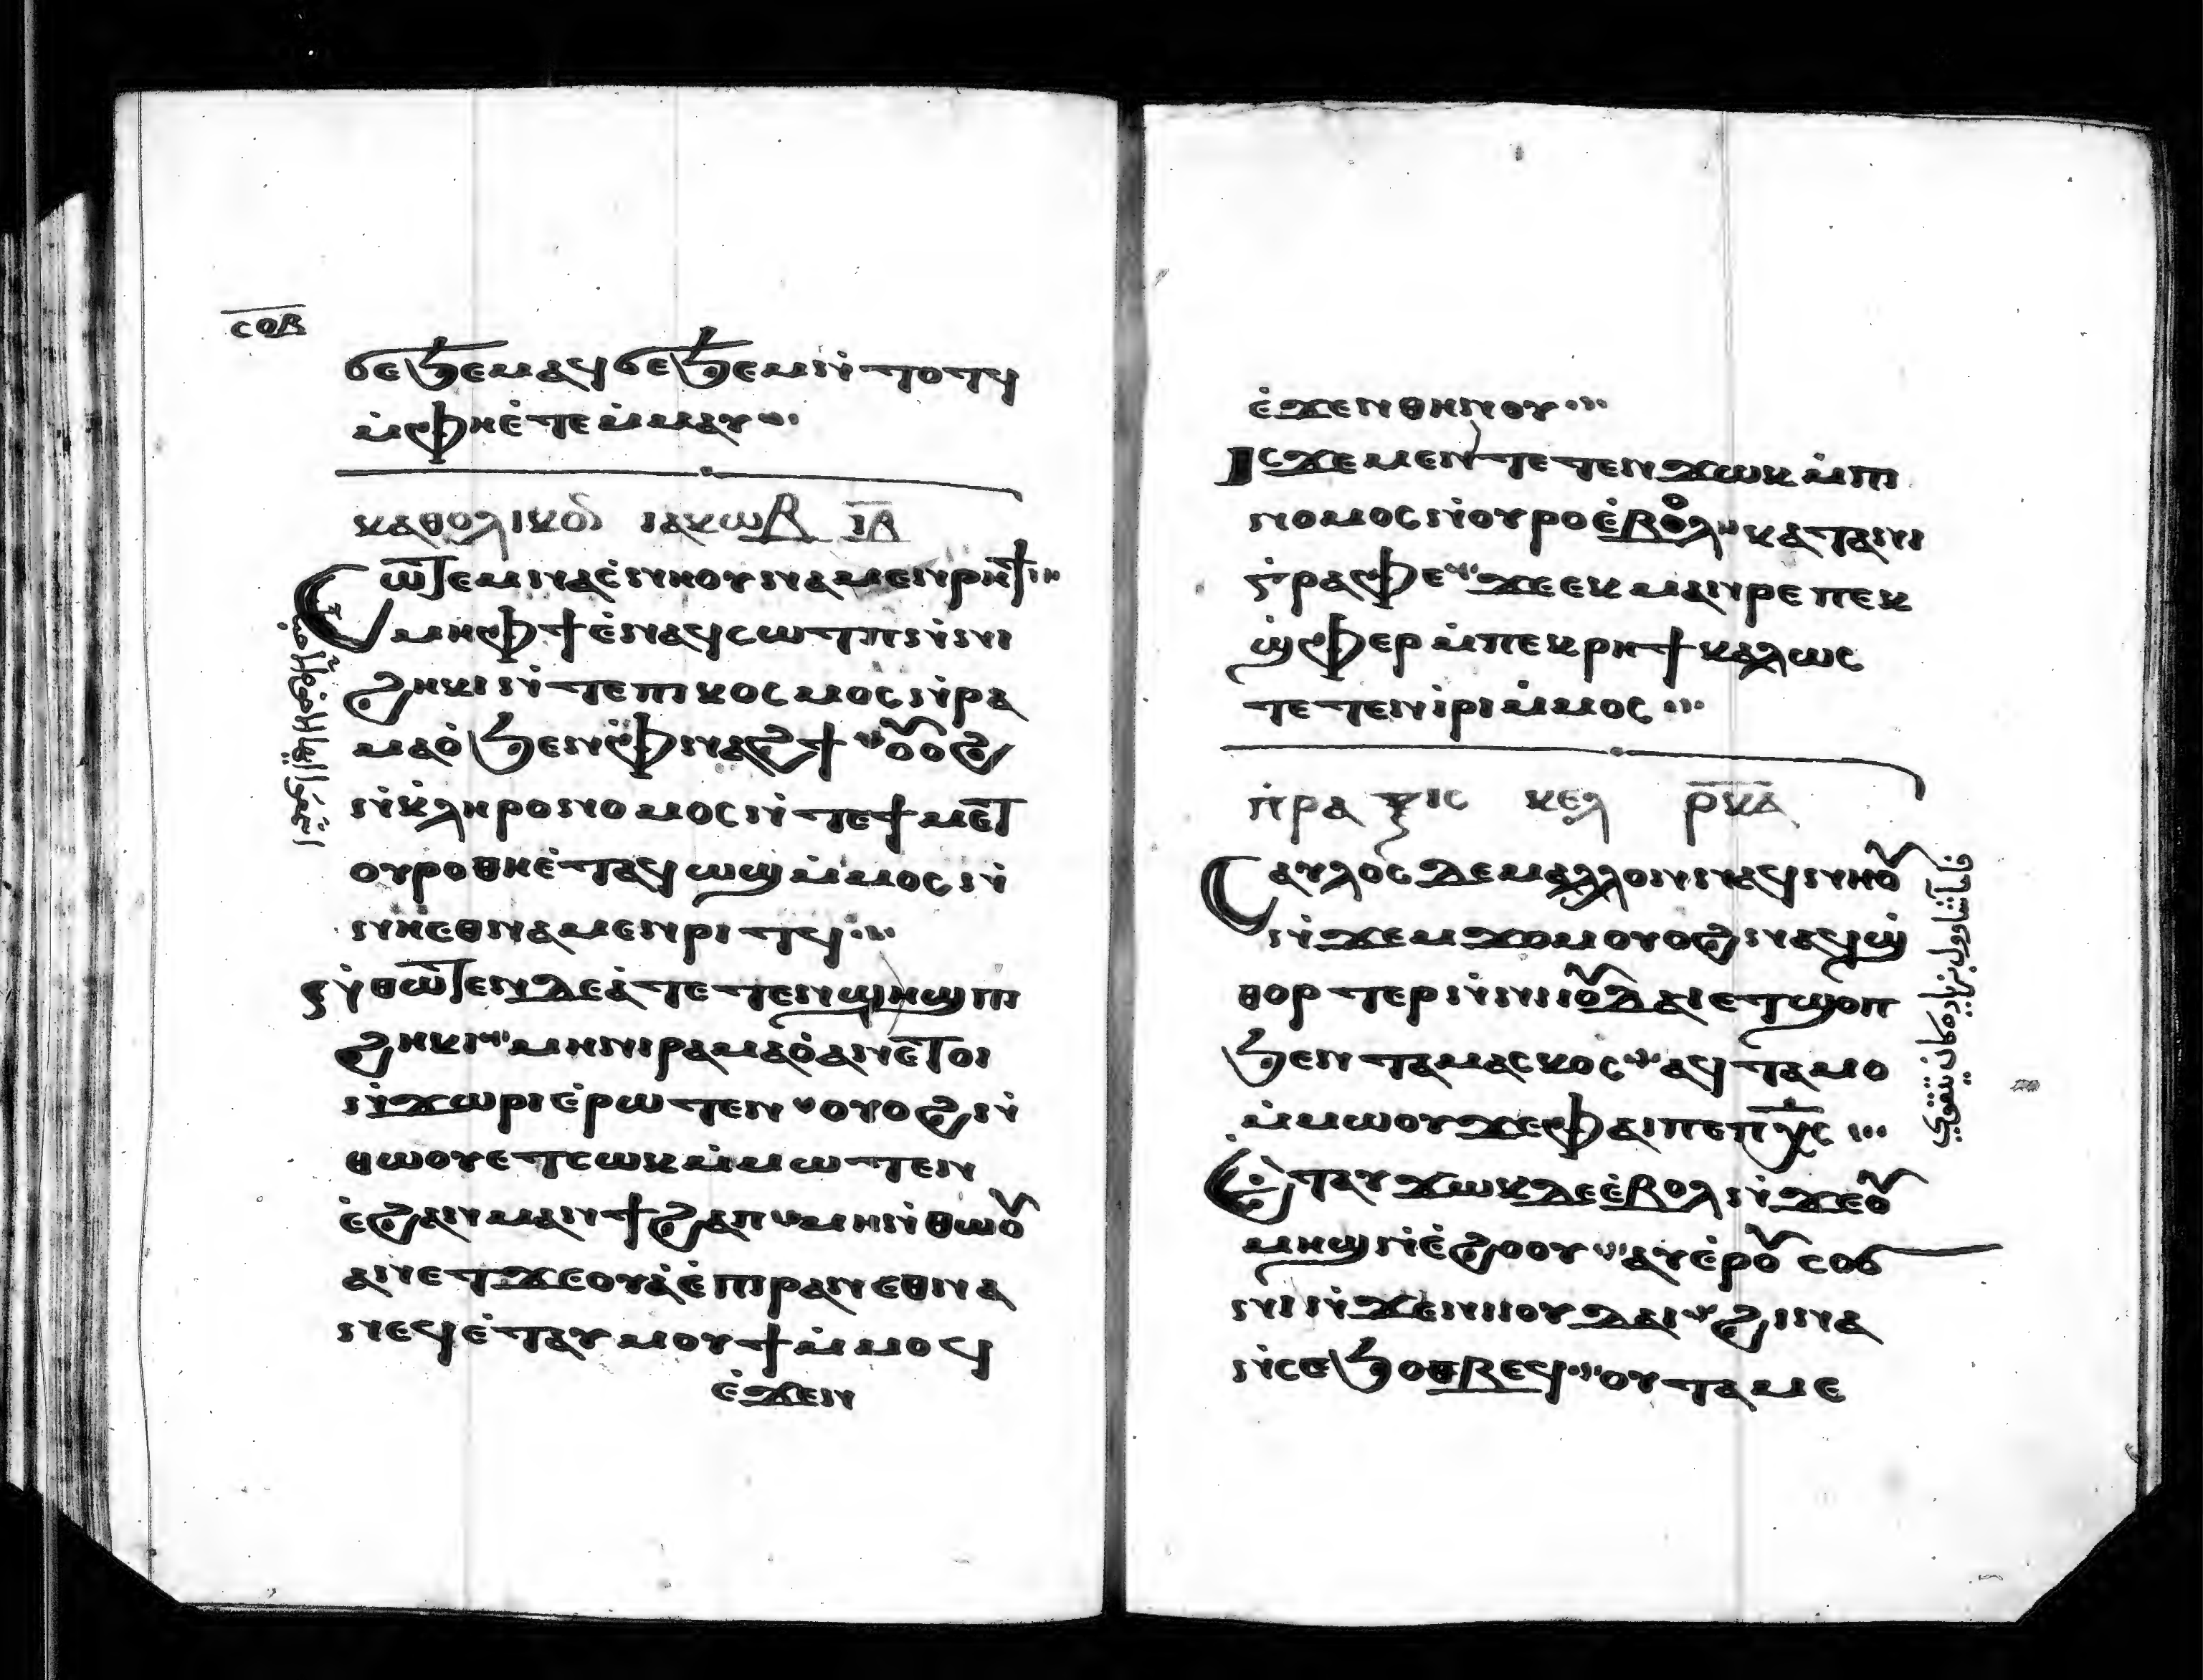 ⲥⲟⲃ
ϭⲉϧⲉⲙⲁϥϭⲉϧⲉⲙⲛ̇ⲧⲟⲧϥ
ⲙ̇ⲫⲏⲉ̇ⲧⲉⲙ̇ⲙⲁⲩ
ⲕⲁⲑⲟⲗⲓⲕⲟⲛ ⲓⲁⲕⲱⲃ ⲓⲃ
ⲥⲱⲧⲉⲙⲛⲁⲉ̇ⲛⲏⲟⲩⲛⲁⲙⲉⲛⲣⲏϯⲙ
ⲙⲏⲫϯⲉ̇ⲛⲁϥⲥⲱⲧⲡⲛ̇ⲛⲓ
ϩⲏⲕⲓⲛ̇ⲧⲉⲡⲓⲕⲟⲥⲙⲟⲥⲛ̇ⲣⲁ
ⲙⲁⲟ̇ϧⲉⲛⲫⲛⲁϩϯⲟⲩⲟϩ
ⲛ̇ⲕ̇ⲗⲏⲣⲟⲛⲟⲙⲟⲥⲛ̇ⲧⲉϯⲙⲉⲧ
ⲟⲩⲣⲟⲑⲏⲉ̇ⲧⲁϥⲱϣⲙ̇ⲙⲟⲥⲛ̇
ⲛⲏⲉⲑⲛⲁⲙⲉⲛⲣⲓⲧϥ
ⲛ̇ⲑⲱⲧⲉⲛⲇⲉⲁ̇ⲧⲉⲧⲉⲛϣⲏϣⲡⲓ
ϩⲏⲕⲓⲙⲏⲛⲓⲣⲁⲙⲁⲟ̇ⲁⲛⲉⲧⲟⲓ
ⲛ̇ϫⲱⲣⲓⲉ̇ⲣⲱⲧⲉⲛⲟⲩⲟϩⲛ̇
ⲑⲱⲟⲩⲉⲧⲥⲱⲕⲙ̇ⲙⲱⲧⲉⲛ
ⲉ̇ϩⲁⲛⲙⲁⲛϯϩⲁⲡⲙⲏⲛ̇ⲑⲱⲟⲩ
ⲁⲛⲉⲧϫⲉⲟⲩⲁ̇ⲉ̇ⲡⲓⲣⲁⲛⲉⲑⲛⲁ
ⲛⲉϥⲉ̇ⲧⲁⲩⲙⲟⲩϯⲙ̇ⲙⲟϥ
ⲉ̇ϫⲉⲛ
ⲉ̇ϫⲉⲛⲑⲏⲛⲟⲩ
ⲓⲥϫⲉⲙⲉⲛⲧⲉⲧⲉⲛϫⲱⲕⲙ̇ⲡⲓ
ⲛⲟⲙⲟⲥⲛ̇ⲟⲩⲣⲟⲉ̇ⲃⲟⲗⲕⲁⲧⲁⲛⲓ
ⲅ̇ⲣⲁⲫⲉϫⲉⲉⲕⲙⲁⲛⲣⲉⲡⲉⲕ
ϣ̇ⲫⲉⲣⲙ̇ⲡⲉⲕⲣⲏϯⲕⲁⲗⲱⲥ
ⲧⲉⲧⲉⲛⲓ̇ⲣⲓⲙ̇ⲙⲟⲥ
ⲡ̇ⲣⲁⲝⲓⲥ ⲕⲉⲗ ⲣⲕⲁ
ⲥⲁⲩⲗⲟⲥⲇⲉⲙⲁⲗⲗⲟⲛⲛⲁϥⲛⲏⲟⲩ
ⲛ̇ϫⲉⲙϫⲟⲙⲟⲩⲟϩⲛⲁϥϣ
ⲑⲟⲣⲧⲉⲣⲛ̇ⲛⲓⲓⲟⲩⲇⲁⲓⲉⲧϣⲟⲡ
ϧⲉⲛⲧⲁⲙⲁⲥⲕⲟⲥⲁϥⲧⲁⲙⲟ
ⲙ̇ⲙⲱⲟⲩϫⲉⲫⲁⲓⲡⲉⲡⲭⲥ
ⲉ̇ⲧⲁⲩϫⲱⲕⲇⲉⲉ̇ⲃⲟⲗⲛ̇ϫⲉⲟⲩ
ⲙⲏϣⲛ̇ⲉ̇ϩⲟⲟⲩⲁⲩⲉ̇ⲣⲟⲩⲥⲟϭ
ⲛⲓⲛ̇ϫⲉⲛⲓⲓⲟⲩⲇⲁⲓϩⲓⲛⲁ
ⲛ̇ⲥⲉϧⲟⲑⲃⲉϥⲟⲩⲧⲁⲙⲉ